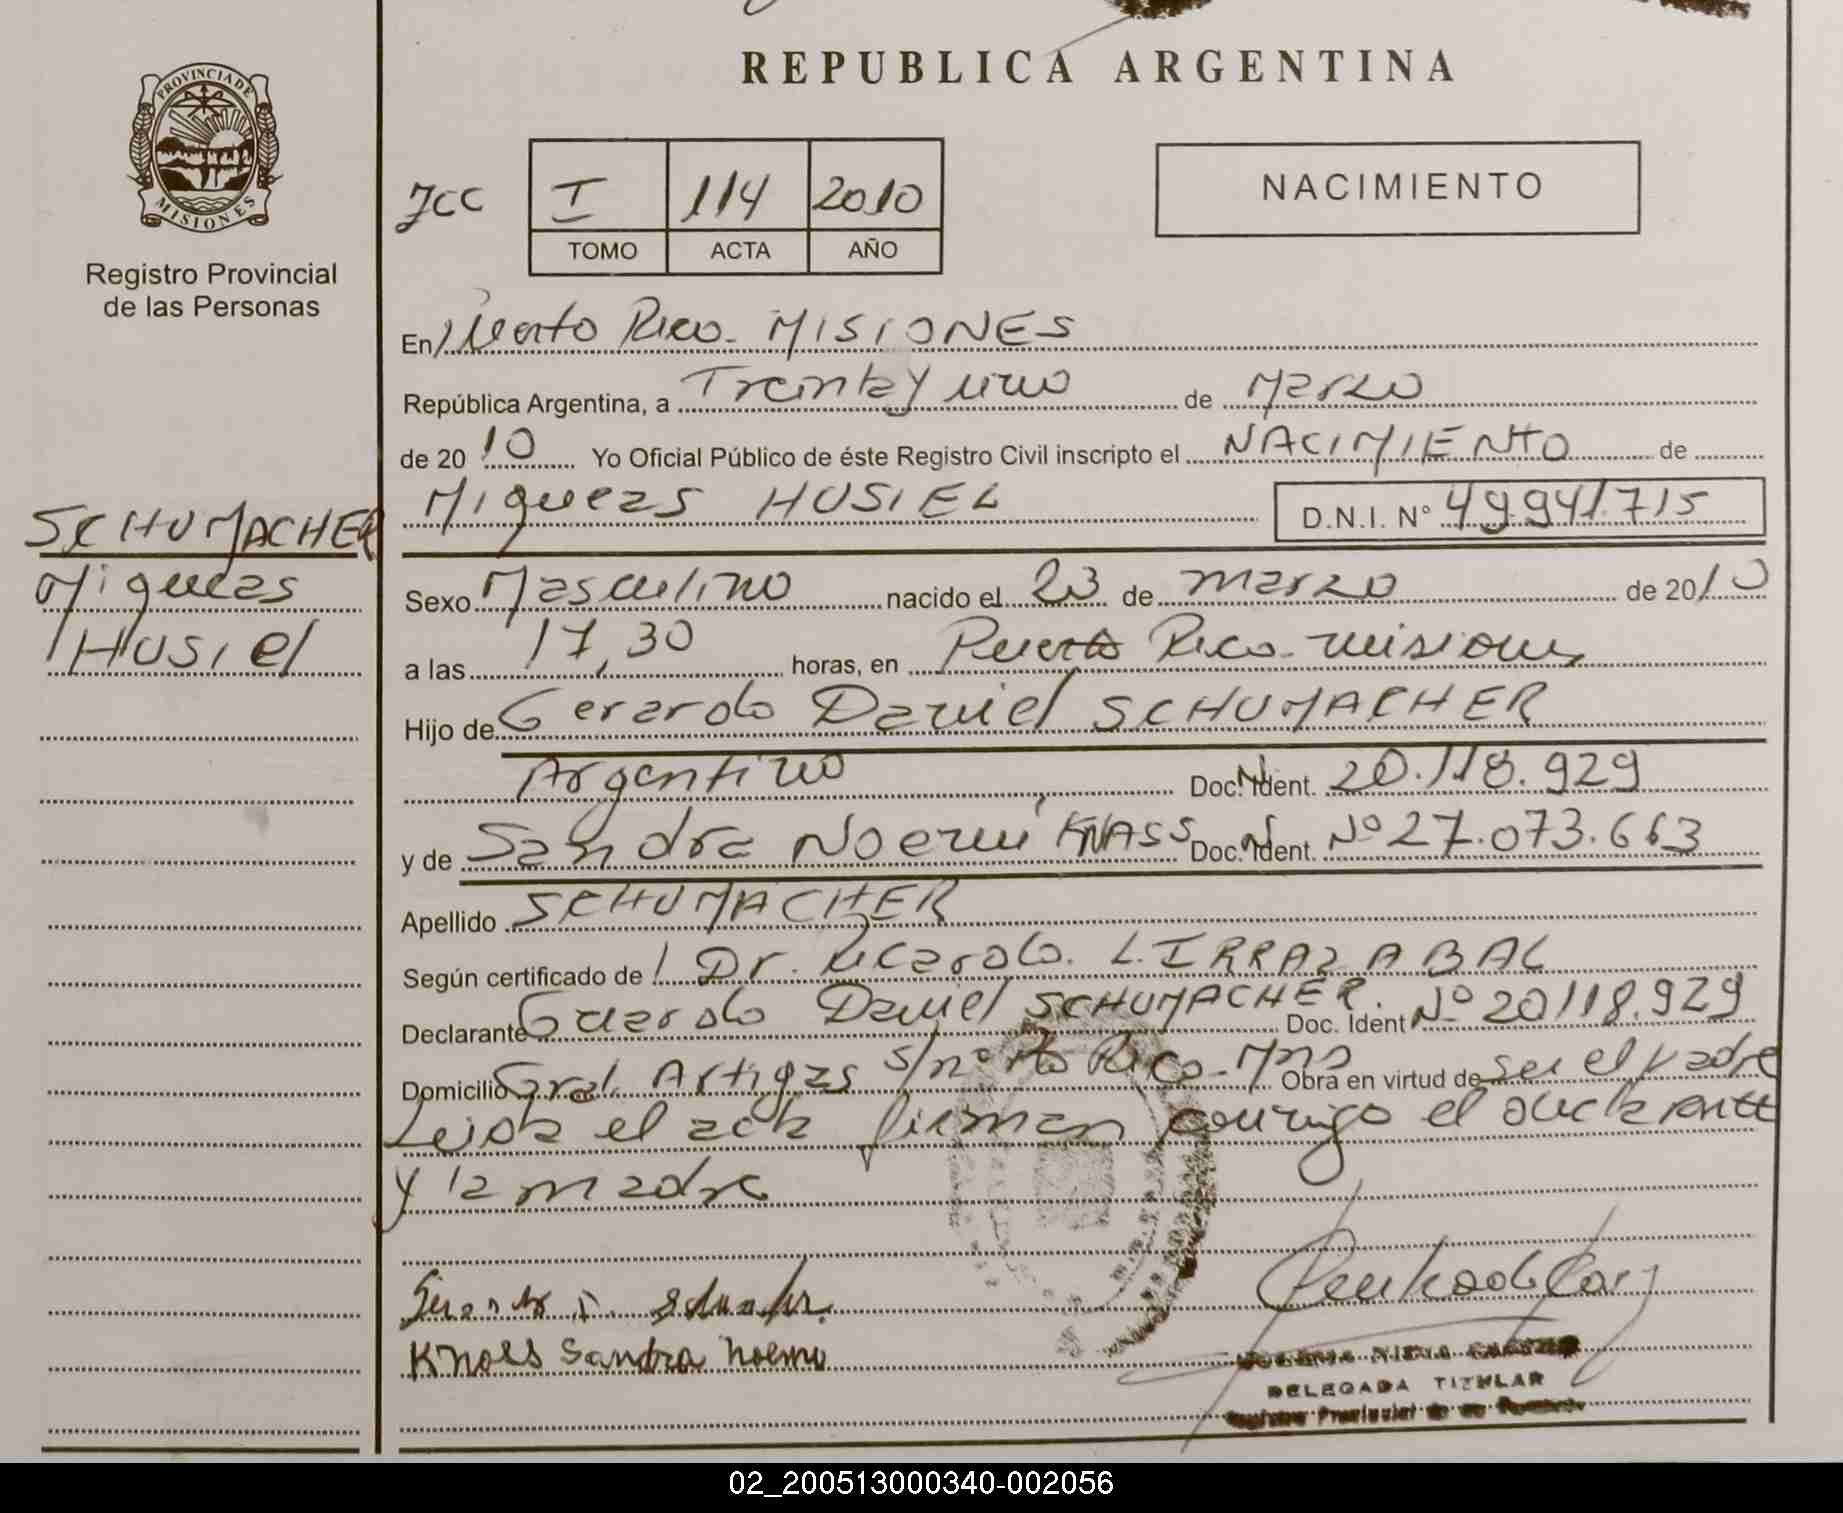 PROVINCIA DE
MISIONES
Registro Provincial
de las Personas
SCHUMACHER
Miqueas
Husiel
REPUBLICA ARGENTINA
JCC
I 114 2010
TOMO ACTA AÑO
NACIMIENTO
En Puerto Rico - MISIONES
República Argentina, a Treinta y uno de Marzo
de 2010 Yo Oficial Público de éste Registro Civil inscripto el NACIMIENTO de
Miqueas HUSIEL D.N.I. N° 49.941.715
Sexo Masculino nacido el 23 de marzo de 2010
a las 17,30 horas, en Puerto Rico - misiones
Hijo de Gerardo Daniel SCHUMACHER
Argentino Doc. Ident. 20.118.929
y de Sandra Noemi KNASS Doc. Ident. N° 27.073.663
Apellido SCHUMACHER
Según certificado de Dr. Ricardo L. IRRAZABAL
Declarante Gerardo Daniel SCHUMACHER. Doc. Ident N° 20118.929
Domicilio Gral. Artigas s/n° Pto Rico - Mnes Obra en virtud de ser el padre
Leida el acta firman conmigo el declarante
y la madre
Knass Sandra Noemi
DELEGADA TITULAR
Registro Provincial de las Personas
02_200513000340-002056